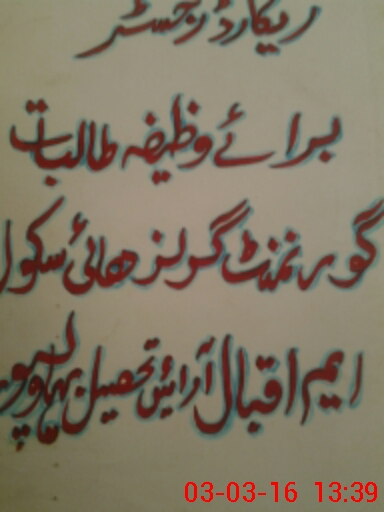 ریکارڈ رجسٹر
برائے وظیفہ طالبات
گورنمنٹ گرلز ھائی سکول
ایم اقبال آرائیں تحصیل بہاولپور
03-03-16 13:39